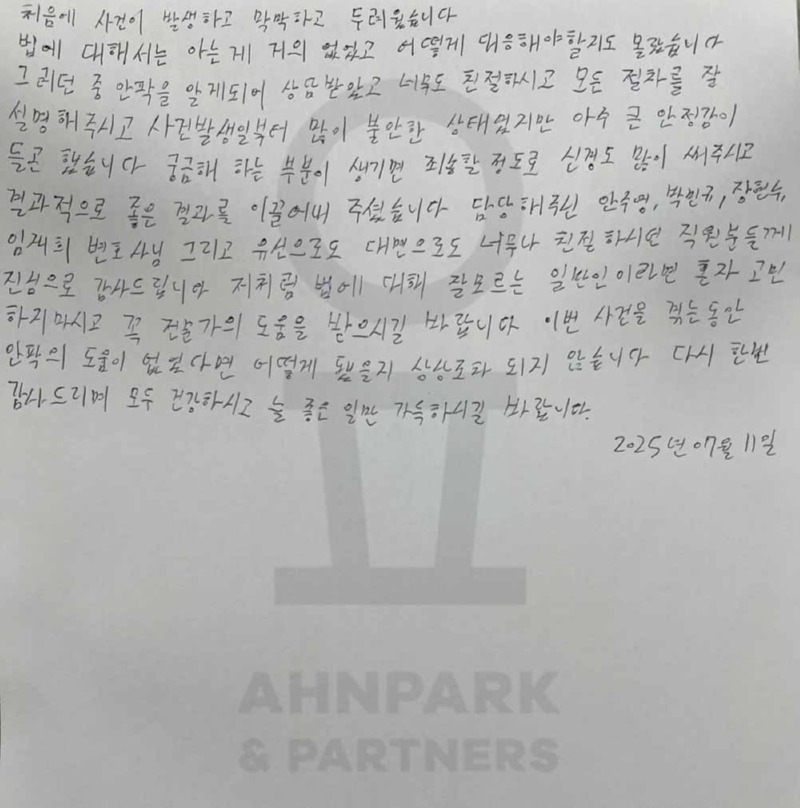 처음에 사건이 발생하고 막막하고 두려웠습니다
법에 대해서는 아는게 거의 없었고 어떻게 대응해야할지도 몰랐습니다
그러던 중 안팍을 알게되어 상담받았고 너무도 친절하시고 모든 절차를 잘
설명해주시고 사건발생일부터 많이 불안한 상태였지만 아주 큰 안정감이
들곤 했습니다 궁금해 하는 부분이 생기면 죄송할 정도로 신경도 많이 써주시고
결과적으로 좋은 결과를 이끌어내 주셨습니다 담당해주신 안주영, 박민규, 장현수,
임재희 변호사님 그리고 유선으로도 대면으로도 너무나 친절하시던 직원분들께
진심으로 감사드립니다 저처럼 법에 대해 잘모르는 일반인이라면 혼자 고민
하지마시고 꼭 전문가의 도움을 받으시길 바랍니다 이번 사건을 겪는동안
안팍의 도움이 없었다면 어떻게 됐을지 상상조차 되지 않습니다 다시 한번
감사드리며 모두 건강하시고 늘 좋은 일만 가득하시길 바랍니다.
2025년 07월 11일
AHNPARK
& PARTNERS